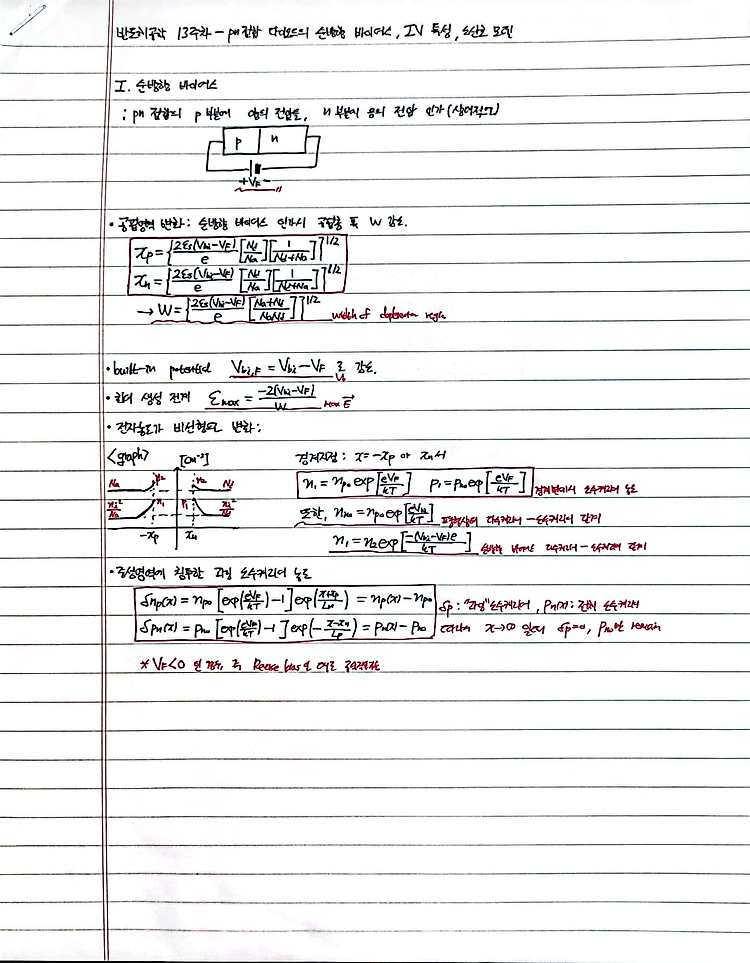 반도체공학 13주차 - pn접합 다이오드의 순방향 바이어스, IV 특성, 소신호 모델
I. 순방향 바이어스
; pn 접합의 p 부분에 양의 전압을, n 부분에 음의 전압 인가 (상대적으로)
p n
+VF-
• 공핍영역 변화: 순방향 바이어스 인가시 공핍층 폭 W 감소.
xp = {2εs(Vbi-VF)/e [Nd/Na][1/(Nd+Na)]}^1/2
xn = {2εs(Vbi-VF)/e [Nd/Na][1/(Nd+Na)]}^1/2
→ W = {2εs(Vbi-VF)/e [(Na+Nd)/(NaNd)]}^1/2 width of depletion region
• built-in potential Vbi,F = Vbi - VF 로 감소.
• 최대 생성 전계 Emax = -2(Vbi-VF)/W max E→
• 전자농도가 비선형으로 변화:
<graph> [cm^-3] 경계지점: x = -xp or xn서
Na Nd
n1 = npo exp[eVF/kT] p1 = pno exp[eVF/kT] 경계면에서 소수캐리어 농도
ni²/Na n1 p1 ni²/Nd
또한, nno = npo exp[eVbi/kT] 평형상태 다수캐리어-소수캐리어 관계
-xp xn
n1 = n2 exp[-(Vbi-VF)e/kT] 순방향 바이어스 다수캐리어-소수캐리어 관계
• 중성영역에 침투한 과잉 소수캐리어 농도
δnp(x) = npo [exp(eVF/kT)-1] exp((x+xp)/Ln) = np(x) - npo δp: "과잉" 소수캐리어, pn(x): 전체 소수캐리어
δpn(x) = pno [exp(eVF/kT)-1] exp(-(x-xn)/Lp) = pn(x) - pno 따라서 x→∞ 일때 δp=0, pno만 remain
* VF<0 인 경우, 즉 Reverse bias인